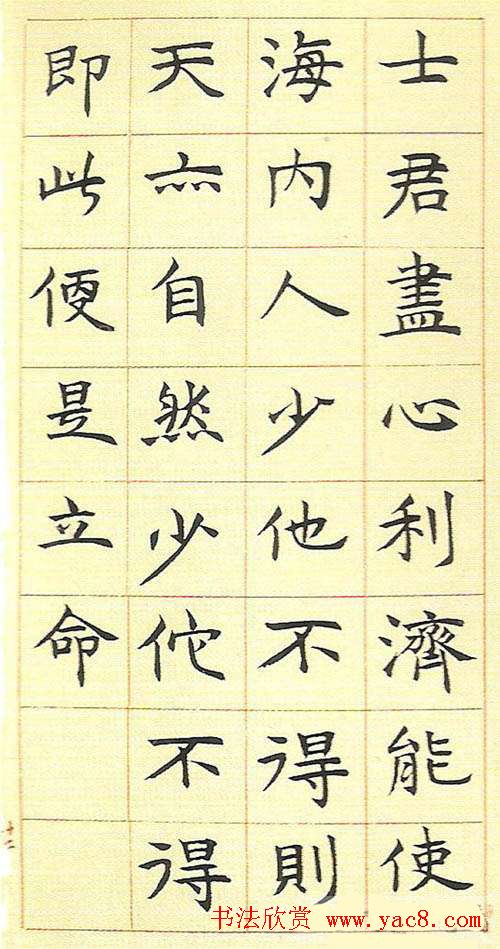 士君盡心利濟能使
海内人少他不得則
天亦自然少佗不得
即此便是立命
十二
书法欣赏 www.yac8.com